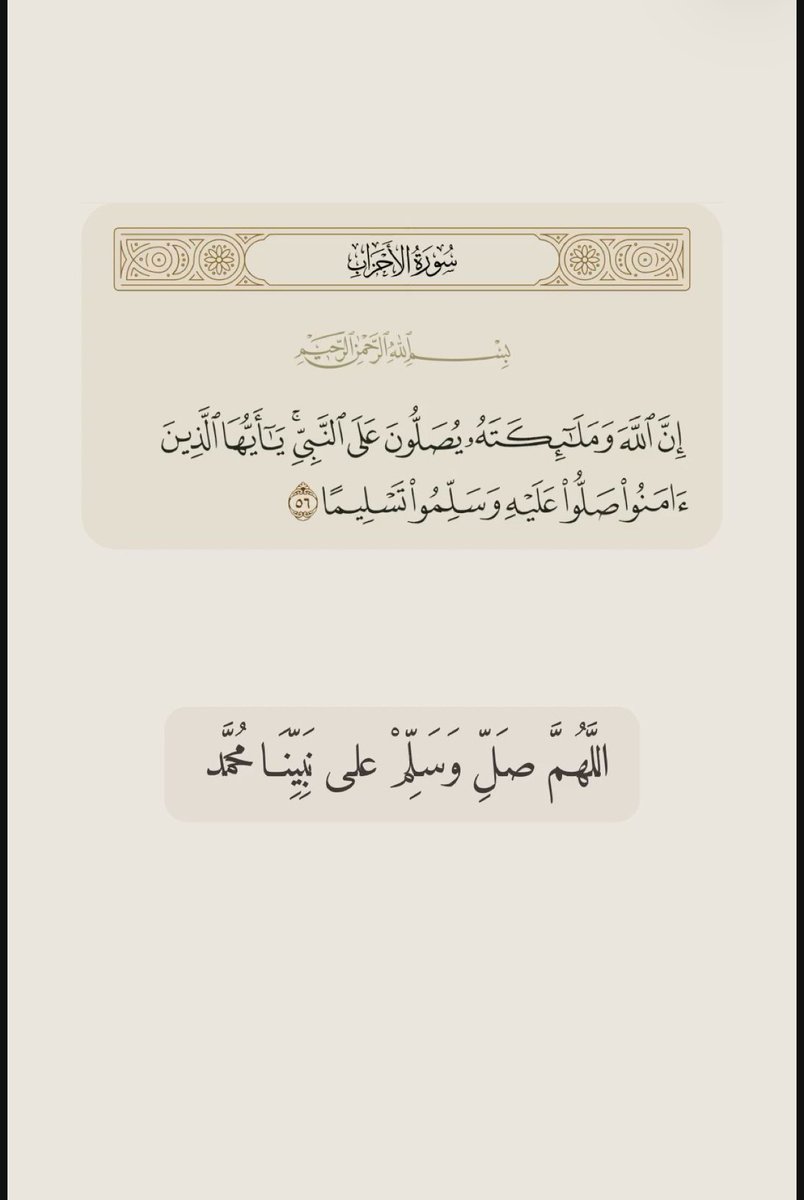 سُورَةُ الأَحْزَابِ
بِسْمِ ٱللَّهِ ٱلرَّحْمَٰنِ ٱلرَّحِيمِ
إِنَّ ٱللَّهَ وَمَلَـٰٓئِكَتَهُۥ يُصَلُّونَ عَلَى ٱلنَّبِيِّۚ يَـٰٓأَيُّهَا ٱلَّذِينَ
ءَامَنُوا۟ صَلُّوا۟ عَلَيْهِ وَسَلِّمُوا۟ تَسْلِيمًا ٥٦
اللَّهُمَّ صَلِّ وَسَلِّمْ على نَبِيِّنَا مُحَمَّد